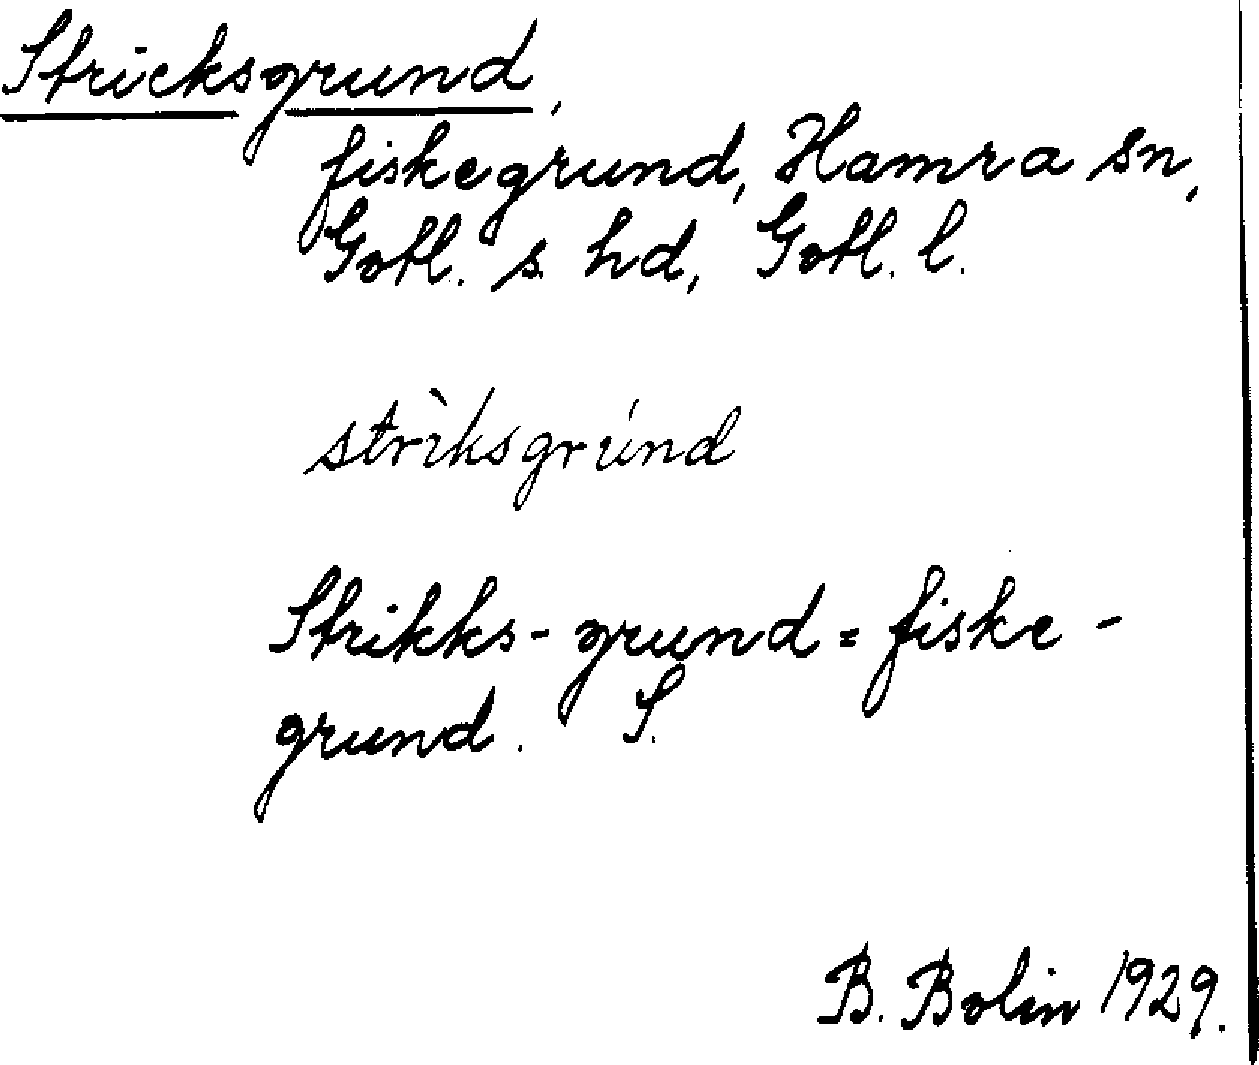 Stricksgrund,
fiskegrund, Hamra sn,
Gotl. s. hd, Gotl. l.
strìksgrúnd
Strikks-grund = fiske-
grund. S.
B. Bolin 1929.